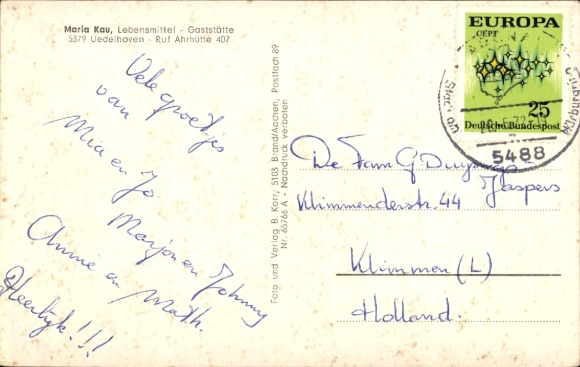 Maria Kau, Lebensmittel - Gaststätte
5379 Uedelhoven - Ruf Ahrhütte 407
Vele groetjes
van
Mia en Jo
Marjon en Johnny
Annie en Math.
Heerlijk!!!
Foto und Verlag B. Korr, 5103 Brand/Aachen, Postfach 89
Nr. 65766 A - Nachdruck verboten
EUROPA
CEPT
25
Deutsche Bundespost
5488
De Fam G Duyzings
Jaspers
Klimmenderstr. 44
Klimmen (L)
Holland.